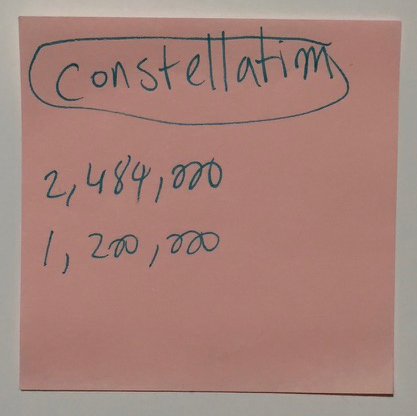 Constellation
2,484,000
1,200,000